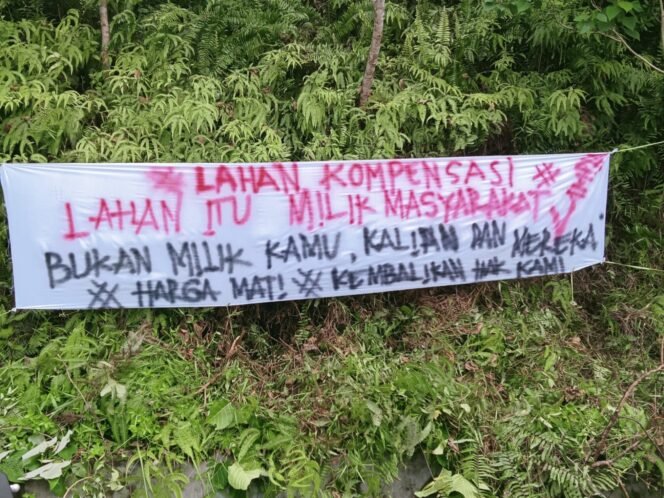 # LAHAN KOMPENSASI #
LAHAN ITU MILIK MASYARAKAT
BUKAN MILIK KAMU, KALIAN DAN MEREKA.
# HARGA MATI # KEMBALIKAN HAK KAMI